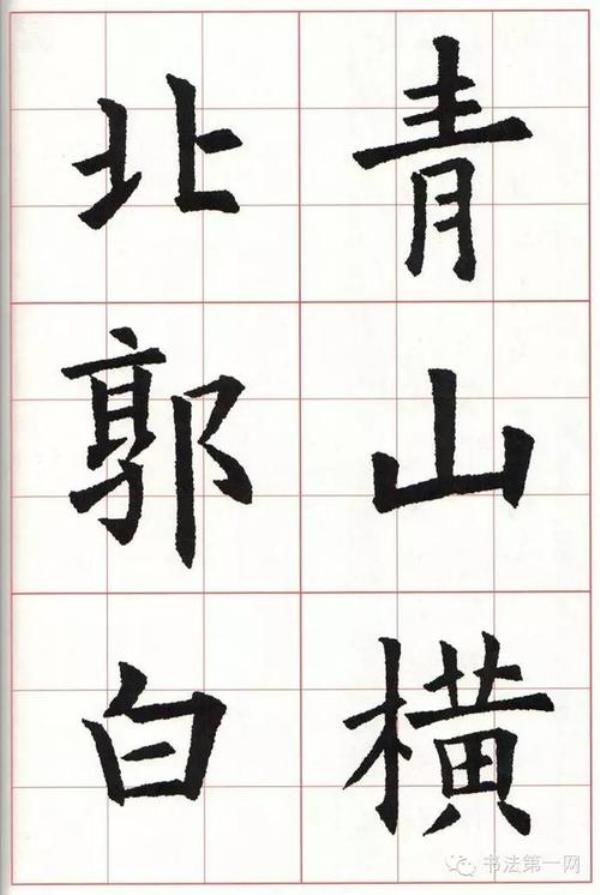 青山橫
北郭白
书法第一网